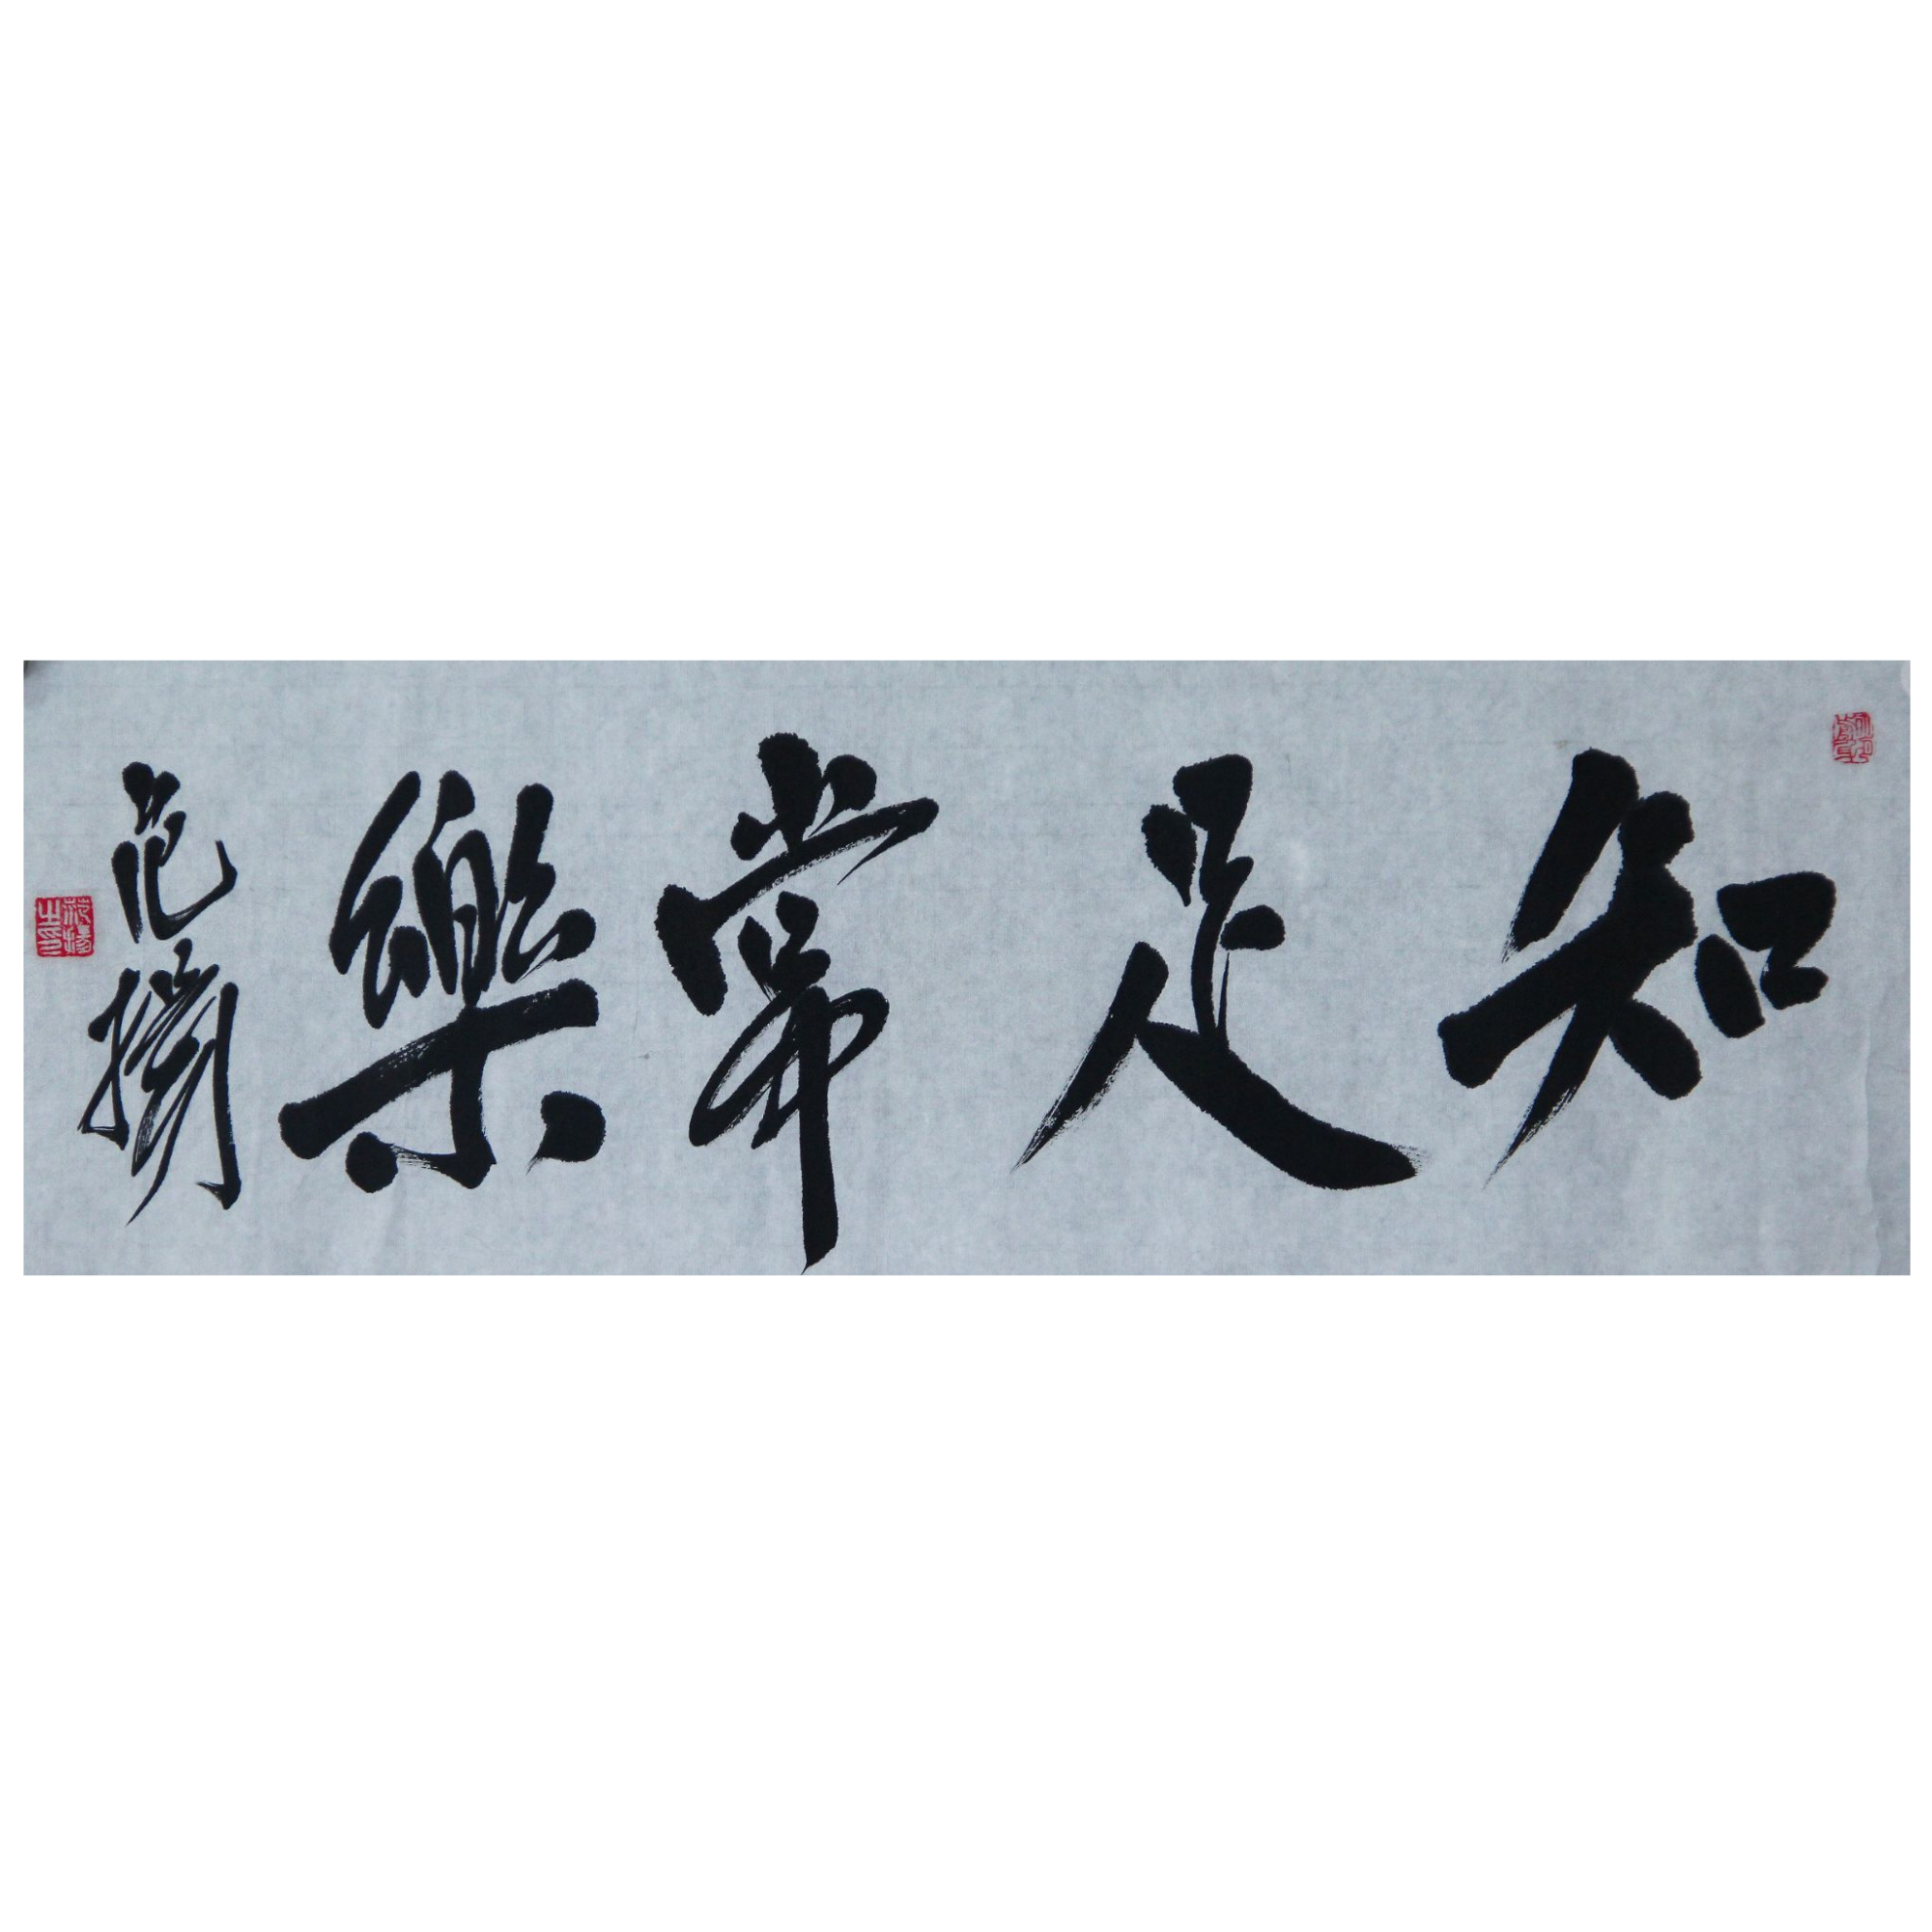 知足常樂
范